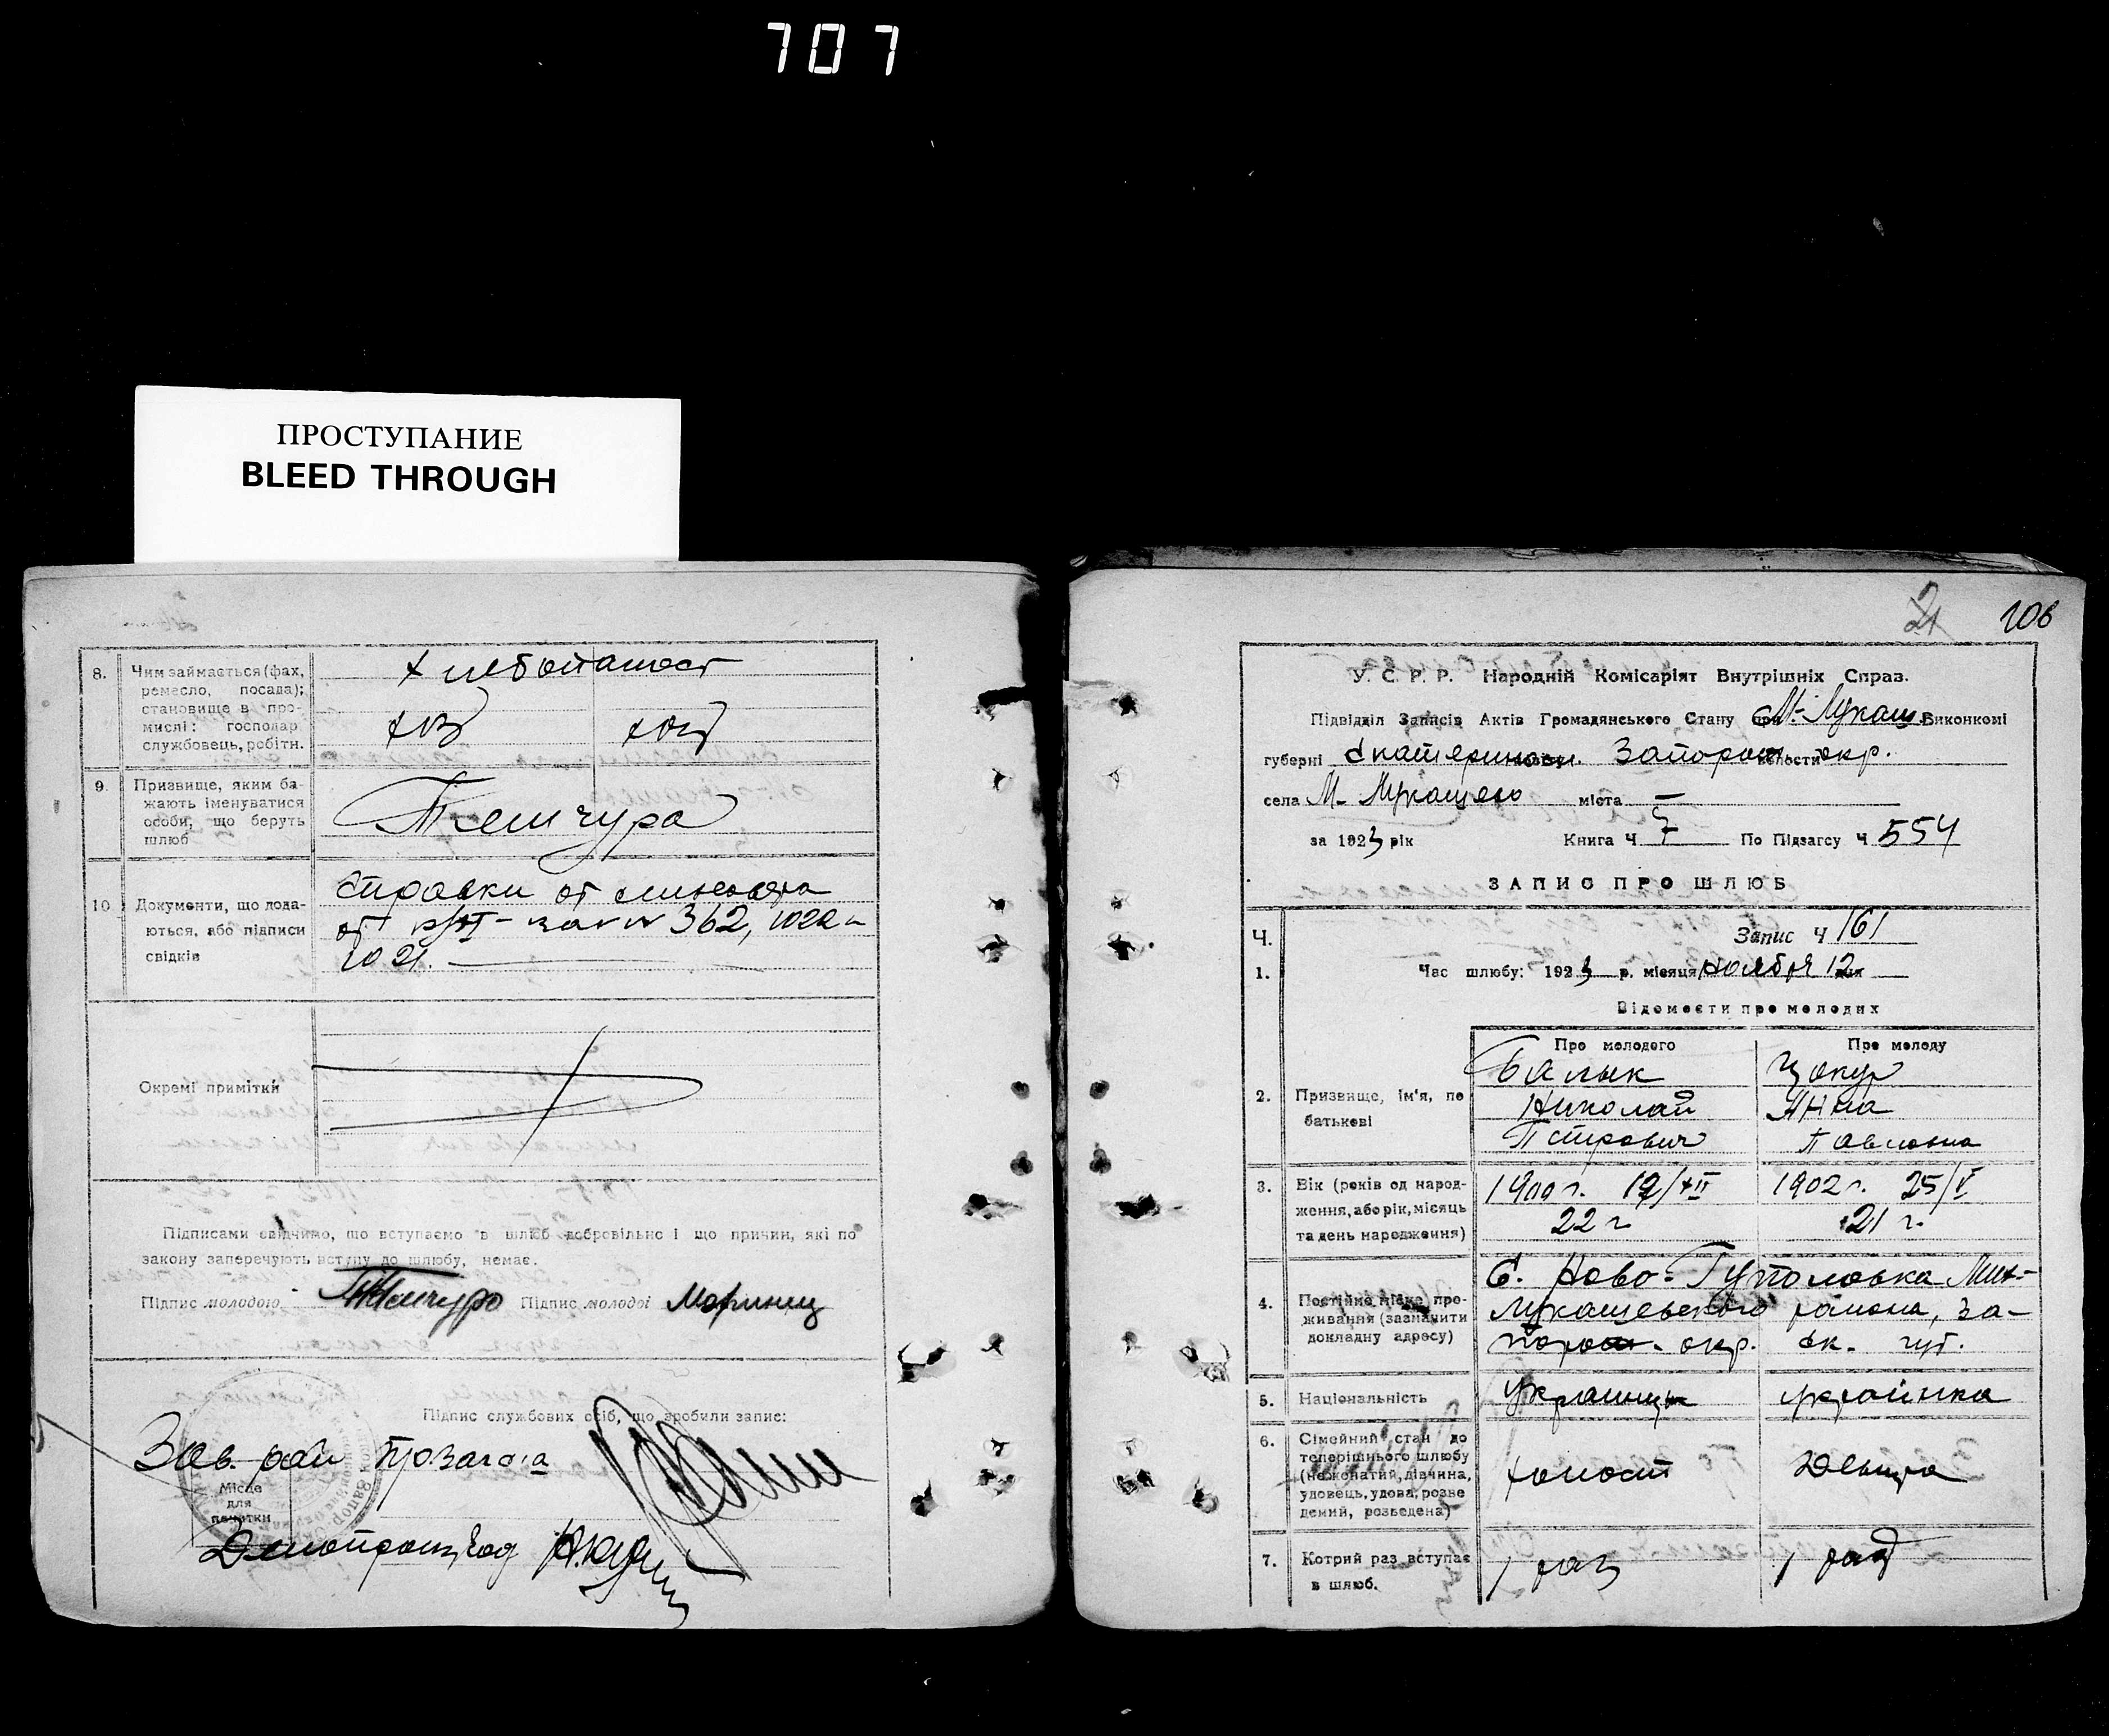 707
ПРОСТУПАНИЕ
BLEED THROUGH
8. Чим займається (фах,
ремесло, посада);
становище в про-
мислі: господар
службовець, робітн.
хлебопашест
хоз хоз
9. Призвище, яким ба-
жають іменуватися
особи, що беруть
шлюб
Темчура
10 Документи, що пода-
ються, або підписи
свідків
Справки от
от 362, 1022 и
1021.
Окремі примітки
Підписами свідчимо, що вступаємо в шлюб добровільно і що причин, які по
закону заперечують вступу до шлюбу, немає.
Підпис молодого Темчура Підпис молодої Маринич
Підпис службових осіб, що зробили запис:
Зав. рай
Місце
для
печатки
21 106
У. С. Р. Р. Народній Комісаріят Внутрішніх Справ.
Підвідділ Записів Актів Громадянського Стану при М-Лукаш. Виконкомі
губерні Екатеринослав. Запорож. волости окр.
села М-Лукашево міста —
за 1923 рік Книга Ч 7 По Підзагсу Ч 554
ЗАПИС ПРО ШЛЮБ
Ч. Запис Ч 161
1. Час шлюбу: 1923 р. місяця Ноября 12 дня
Відомости про молодих
Про молодого Про молоду
2. Призвище, ім'я, по
батькові
Балык Цокур
Николай Анна
Петрович Павловна
3. Вік (років од народ-
ження, або рік, місяць
та день народження)
1900 г. 19/XII 1902 г. 25/V
22 г. 21 г.
4. Постійне місце про-
живання (зазначити
докладну адресу)
С. Ново-Гуполовка Мих-
Лукашевского района, За-
порож. окр. Ек. губ.
5. Національність украинец украинка
6. Сімейний стан до
теперішнього шлюбу
(нежонатий, дівчина,
удовець, удова, розве
дений, розведена)
холост девица
7. Котрий раз вступає
в шлюб.
1 раз 1 раз